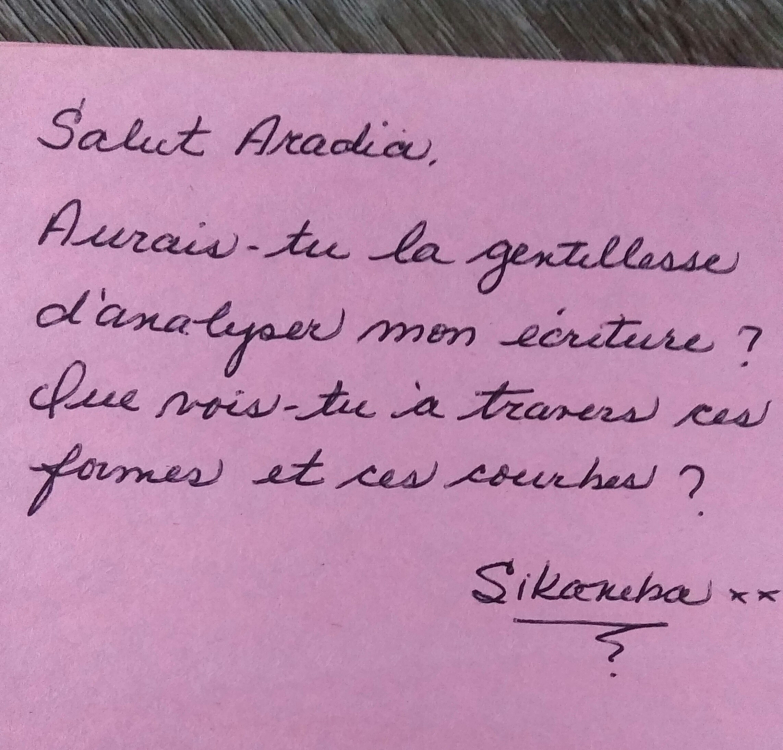 Salut Aradia,
Aurais-tu la gentillesse
d'analyser mon écriture ?
Que vois-tu à travers ces
formes et ces courbes ?
Sikaneba xx